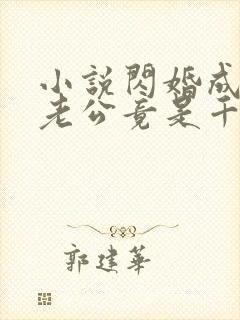 小説閃婚成
老公竟是千
郭建華